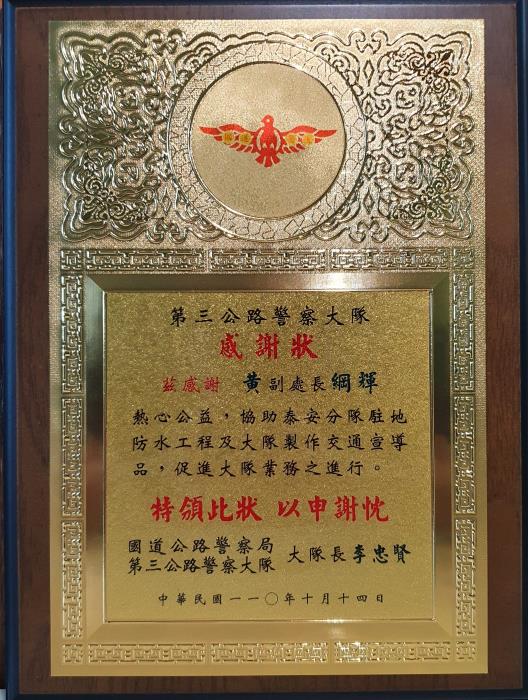 第三公路警察大隊
感謝狀
茲感謝 黃副處長綱輝
熱心公益，協助泰安分隊駐地
防水工程及大隊製作交通宣導
品，促進大隊業務之進行。
特頒此狀 以申謝忱
國道公路警察局
第三公路警察大隊 大隊長李忠賢
中華民國一一〇年十月十四日